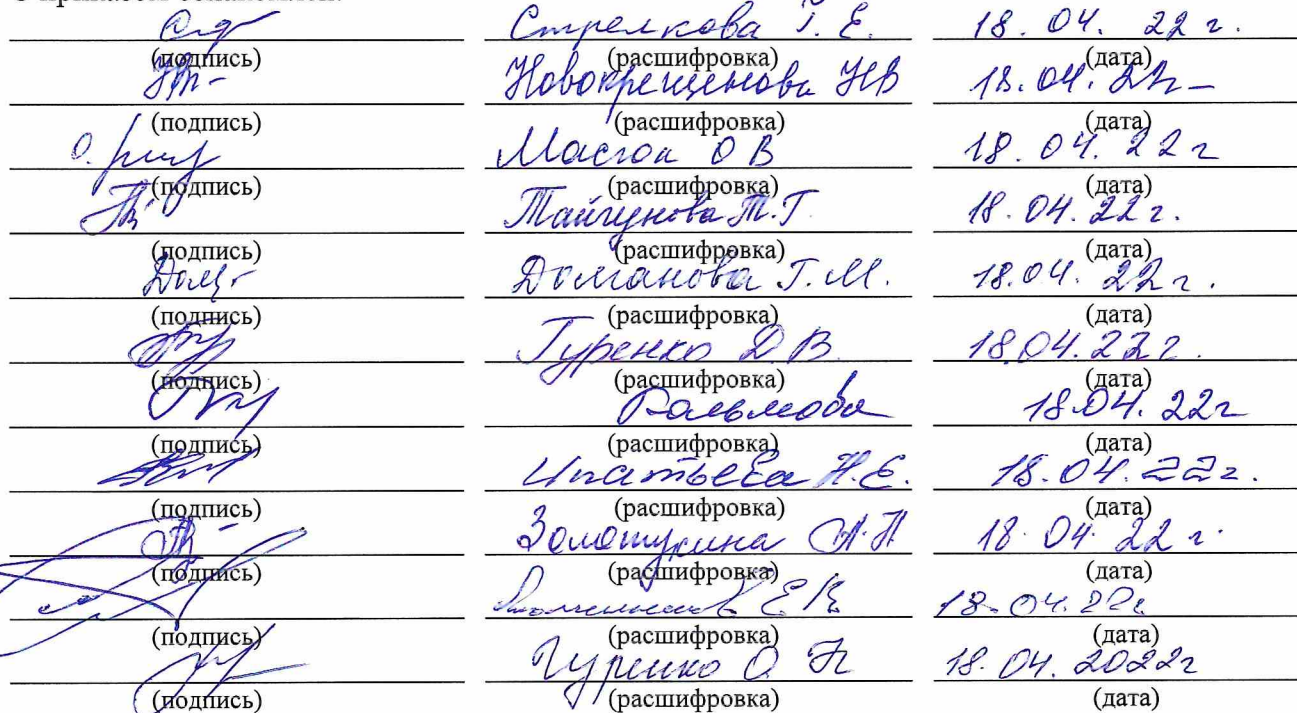 Стрелкова Т. Е. 18. 04. 22 г.
(подпись) (расшифровка) (дата)
Новокрещенова НВ 18. 04. 22г
(подпись) (расшифровка) (дата)
О В 18. 04. 22 г
(подпись) (расшифровка) (дата)
Тайгунова Т.Г. 18. 04. 22 г.
(подпись) (расшифровка) (дата)
Долганова Г. М. 18.04. 22 г.
(подпись) (расшифровка) (дата)
Гуренко Д. В. 18.04. 22 г.
(подпись) (расшифровка) (дата)
18.04. 22г
(подпись) (расшифровка) (дата)
Ипатьева Н.Е. 18. 04. 22г.
(подпись) (расшифровка) (дата)
Золотухина А.Н 18. 04. 22 г.
(подпись) (расшифровка) (дата)
18.04.22г
(подпись) (расшифровка) (дата)
Гуренко О. Н 18. 04. 2022г
(подпись) (расшифровка) (дата)